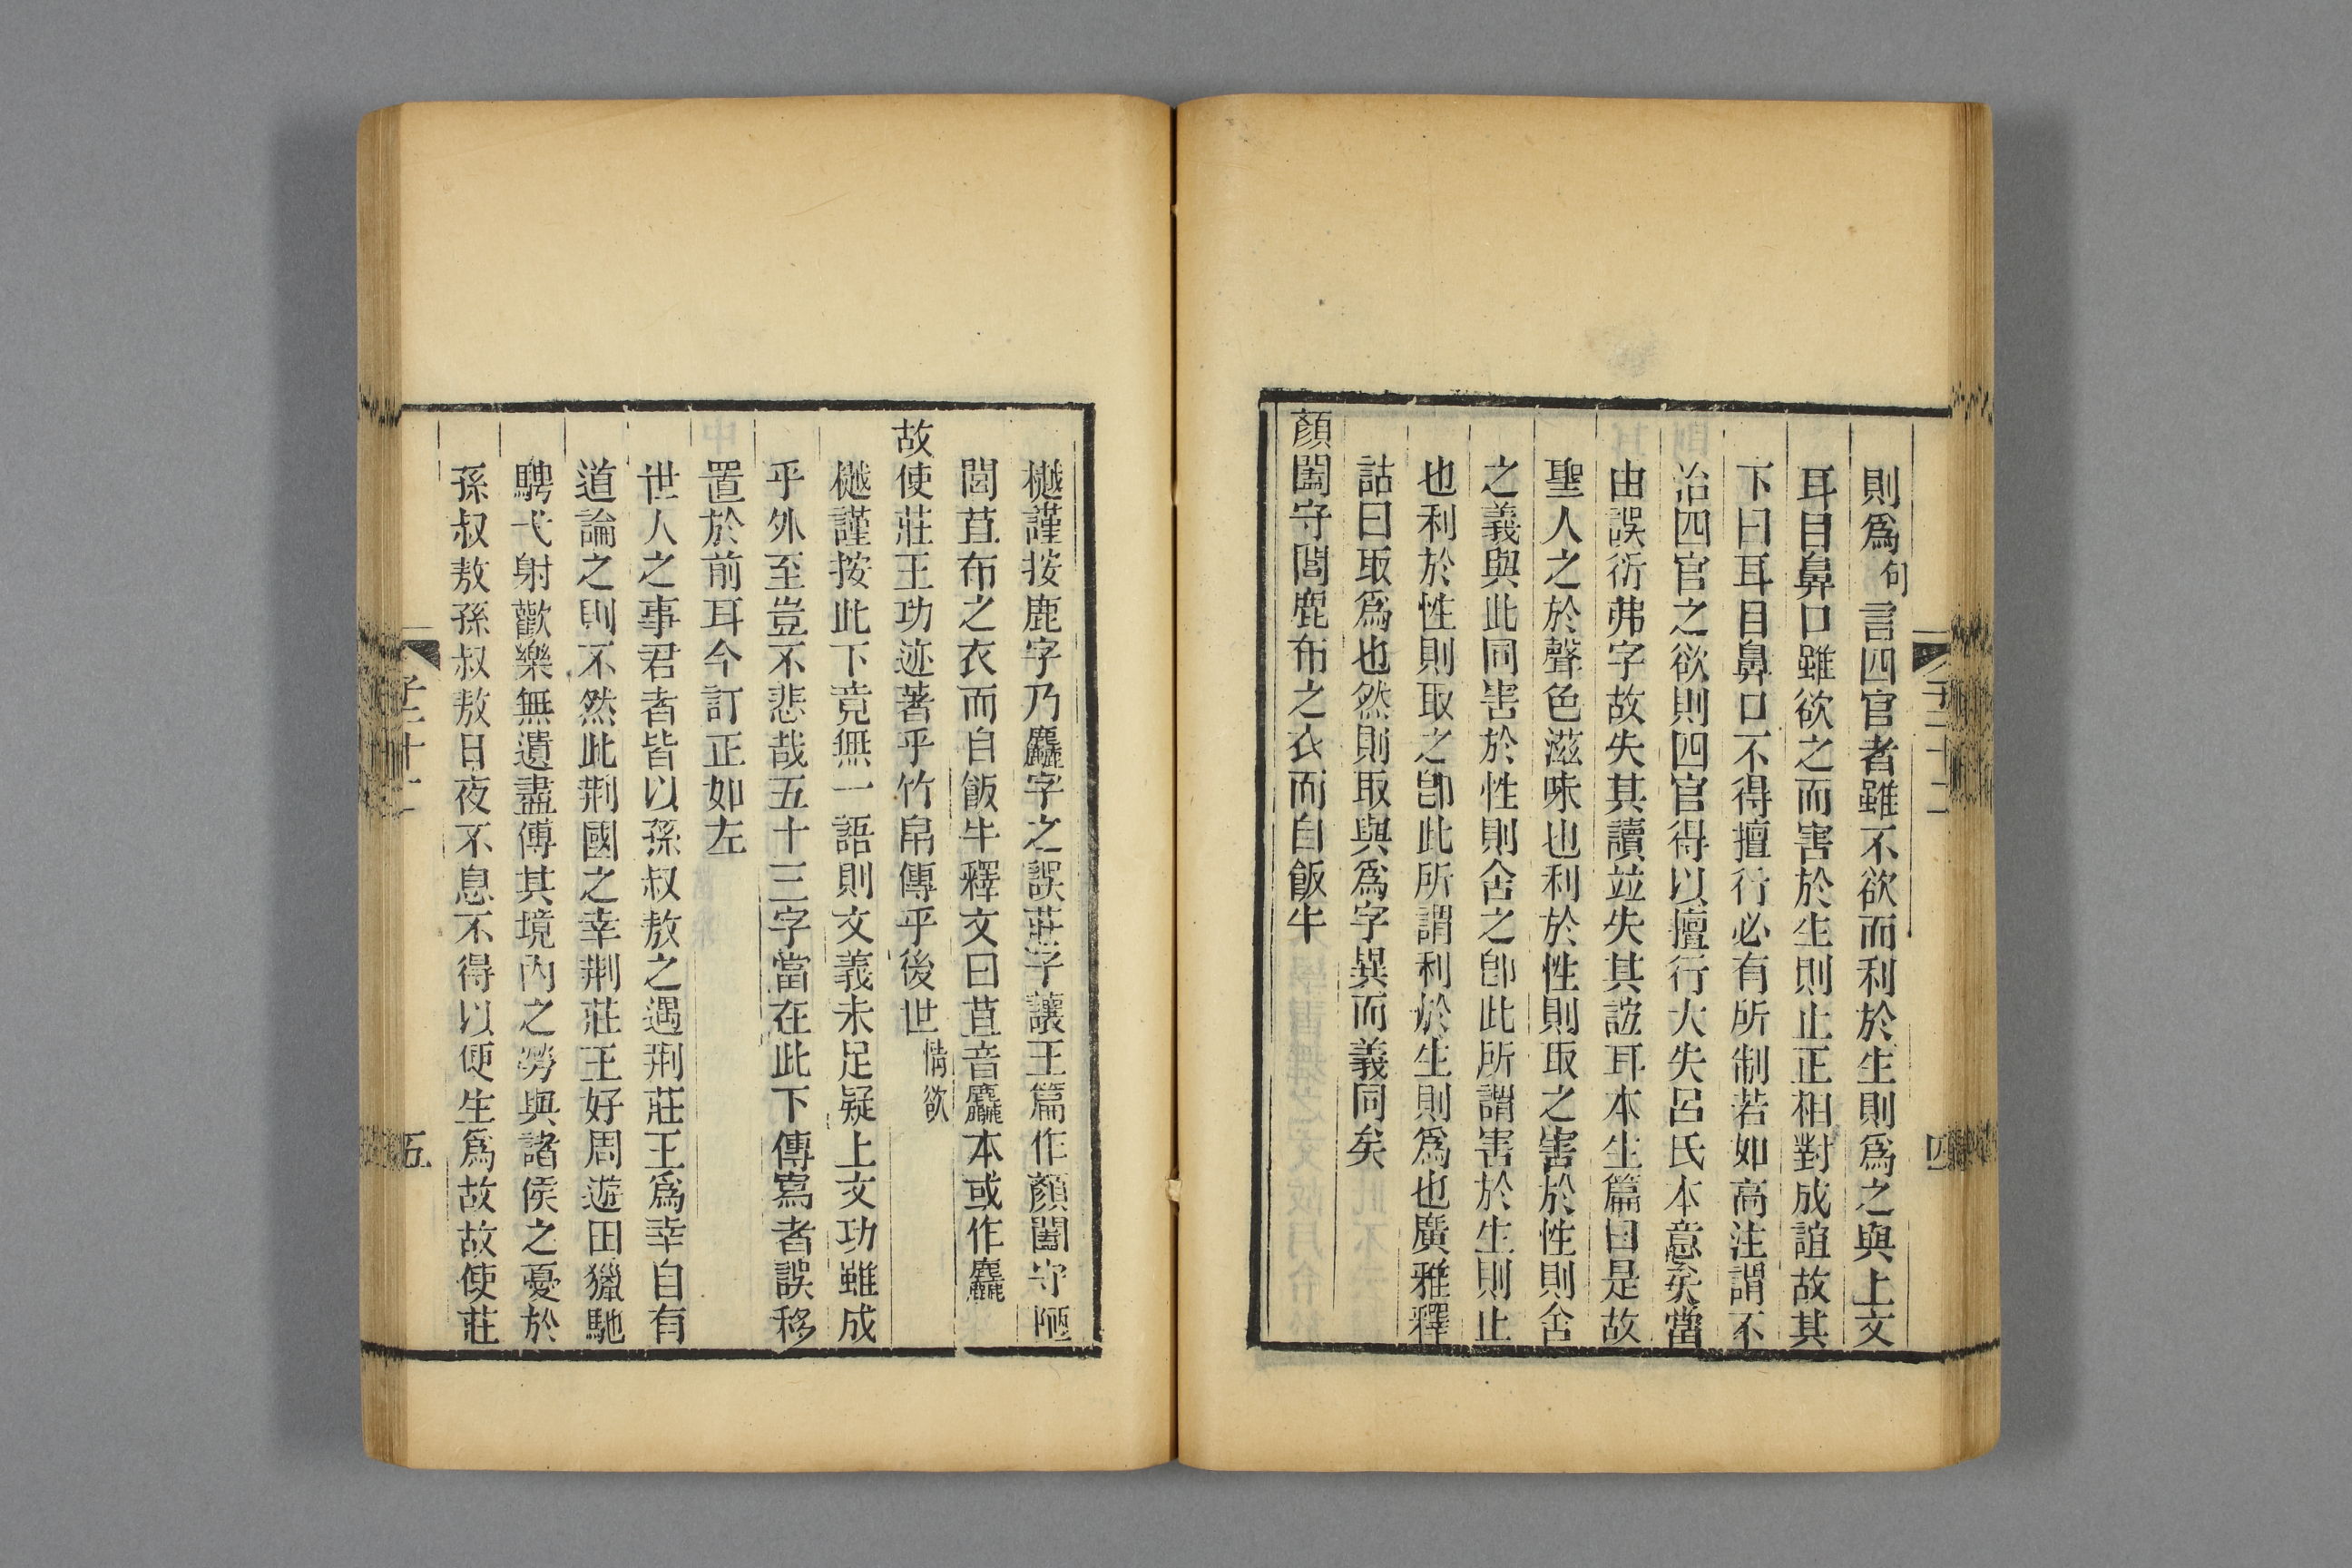 則爲句言四官者雖不欲而利於生則爲之與上文
耳目鼻口雖欲之而害於生則止正相對成誼故其
下曰耳目鼻口不得擅行必有所制若如高注謂不
治四官之欲則四官得以擅行大失呂氏本意矣當
由誤衍弗字故失其讀並失其誼耳本生篇曰是故
聖人之於聲色滋味也利於性則取之害於性則舍
之義與此同害於性則舍之卽此所謂害於生則止
也利於性則取之卽此所謂利於生則爲也廣雅釋
詁曰取爲也然則取與爲字異而義同矣
顏闔守閭鹿布之衣而自飯牛
樾謹按鹿字乃麤字之誤莊子讓王篇作顏闔守陋
閭苴布之衣而自飯牛釋文曰苴音麤本或作麤
故使莊王功迹著乎竹帛傳乎後世情欲
樾謹按此下竟無一語則文義未足疑上文功雖成
乎外至豈不悲哉五十三字當在此下傳寫者誤移
置於前耳今訂正如左
世人之事君者皆以孫叔敖之遇荆莊王爲幸自有
道論之則不然此荆國之幸荆莊王好周遊田獵馳
騁弋射歡樂無遺盡傅其境內之勞與諸侯之憂於
孫叔敖孫叔敖日夜不息不得以便生爲故故使莊
子二十二
五